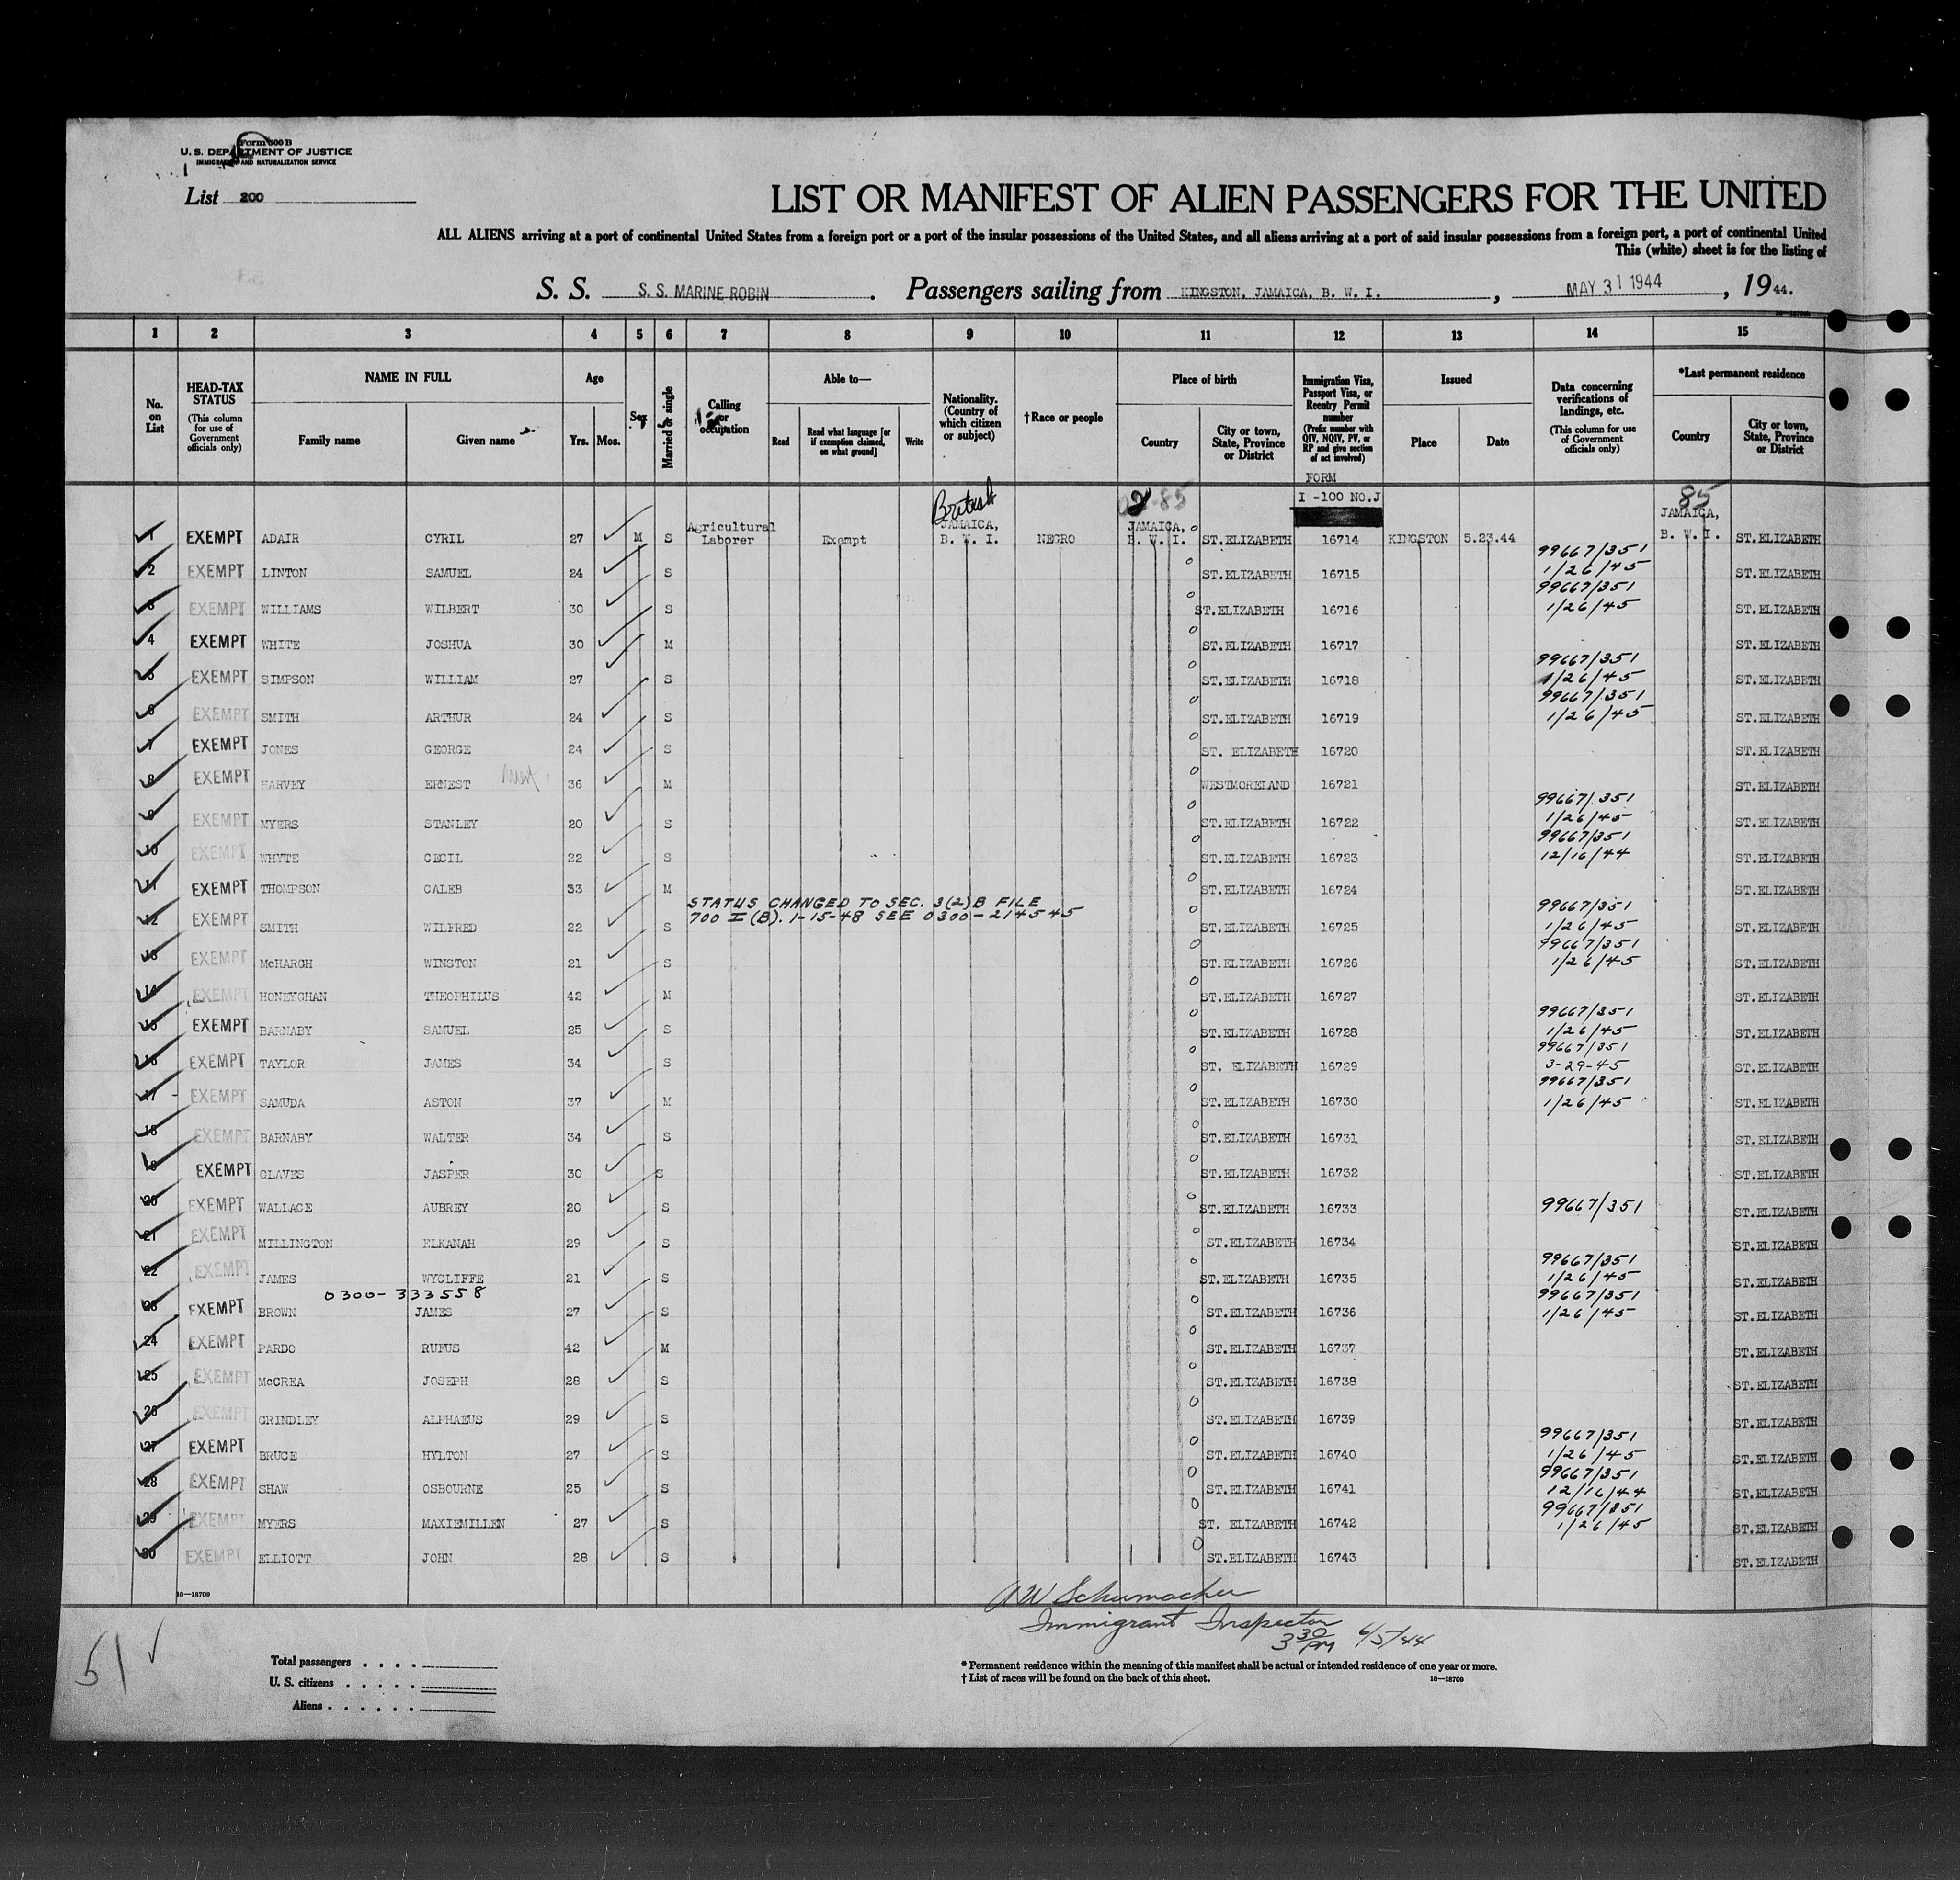 Form 500 B
U. S. DEPARTMENT OF JUSTICE
IMMIGRATION AND NATURALIZATION SERVICE
List 200
LIST OR MANIFEST OF ALIEN PASSENGERS FOR THE UNITED
ALL ALIENS arriving at a port of continental United States from a foreign port or a port of the insular possessions of the United States, and all aliens arriving at a port of said insular possessions from a foreign port, a port of continental United
This (white) sheet is for the listing of
S. S. S. S. MARINE ROBIN. Passengers sailing from KINGSTON, JAMAICA, B. W. I., MAY 31 1944, 19 44.
1 2 3 4 5 6 7 8 9 10 11 12 13 14 15
No. on List
HEAD-TAX STATUS (This column for use of Government officials only)
NAME IN FULL Family name Given name
Age Yrs. Mos.
Sex
Married or single
Calling or occupation
Able to— Read Read what language [or if exemption claimed, on what ground] Write
Nationality. (Country of which citizen or subject)
†Race or people
Place of birth Country City or town, State, Province or District
Immigration Visa, Passport Visa, or Reentry Permit number (Prefix number with QIV, NQIV, PV, or RP and give section of act involved)
FORM I -100 NO.J
Issued Place Date
Data concerning verifications of landings, etc. (This column for use of Government officials only)
*Last permanent residence Country City or town, State, Province or District
British 85 85
1 EXEMPT ADAIR CYRIL 27 M S Agricultural Laborer Exempt JAMAICA, B. W. I. NEGRO JAMAICA, B. W. I. ST.ELIZABETH 16714 KINGSTON 5.23.44 JAMAICA, B. W. I. ST.ELIZABETH
2 EXEMPT LINTON SAMUEL 24 S ST.ELIZABETH 16715 99667/351 1/26/45 ST.ELIZABETH
3 EXEMPT WILLIAMS WILBERT 30 S ST.ELIZABETH 16716 99667/351 1/26/45 ST.ELIZABETH
4 EXEMPT WHITE JOSHUA 30 M ST.ELIZABETH 16717 ST.ELIZABETH
5 EXEMPT SIMPSON WILLIAM 27 S ST.ELIZABETH 16718 99667/351 1/26/45 ST.ELIZABETH
6 EXEMPT SMITH ARTHUR 24 S ST.ELIZABETH 16719 99667/351 1/26/45 ST.ELIZABETH
7 EXEMPT JONES GEORGE 24 S ST. ELIZABETH 16720 ST.ELIZABETH
8 EXEMPT HARVEY ERNEST 36 M WESTMORELAND 16721 ST.ELIZABETH
9 EXEMPT MYERS STANLEY 20 S ST.ELIZABETH 16722 99667/351 1/26/45 ST.ELIZABETH
10 EXEMPT WHYTE CECIL 22 S ST.ELIZABETH 16723 99667/351 12/16/44 ST.ELIZABETH
11 EXEMPT THOMPSON CALEB 33 M ST.ELIZABETH 16724 ST.ELIZABETH
STATUS CHANGED TO SEC. 3(2)B FILE
700 I (B). 1-15-48 SEE 0300-214545
12 EXEMPT SMITH WILFRED 22 S ST.ELIZABETH 16725 99667/351 1/26/45 ST.ELIZABETH
13 EXEMPT McHARGH WINSTON 21 S ST.ELIZABETH 16726 99667/351 1/26/45 ST.ELIZABETH
14 EXEMPT HONEYGHAN THEOPHILUS 42 M ST.ELIZABETH 16727 ST.ELIZABETH
15 EXEMPT BARNABY SAMUEL 25 S ST.ELIZABETH 16728 99667/351 1/26/45 ST.ELIZABETH
16 EXEMPT TAYLOR JAMES 34 S ST. ELIZABETH 16729 99667/351 3-29-45 ST.ELIZABETH
17 EXEMPT SAMUDA ASTON 37 M ST.ELIZABETH 16730 99667/351 1/26/45 ST.ELIZABETH
18 EXEMPT BARNABY WALTER 34 S ST.ELIZABETH 16731 ST.ELIZABETH
19 EXEMPT GLAVES JASPER 30 S ST.ELIZABETH 16732 ST.ELIZABETH
20 EXEMPT WALLACE AUBREY 20 S ST.ELIZABETH 16733 99667/351 ST.ELIZABETH
21 EXEMPT MILLINGTON ELKANAH 29 S ST.ELIZABETH 16734 ST.ELIZABETH
22 EXEMPT JAMES WYCLIFFE 21 S ST.ELIZABETH 16735 99667/351 1/26/45 ST.ELIZABETH
0300-333558
23 EXEMPT BROWN JAMES 27 S ST.ELIZABETH 16736 99667/351 1/26/45 ST.ELIZABETH
24 EXEMPT PARDO RUFUS 42 M ST.ELIZABETH 16737 ST.ELIZABETH
25 EXEMPT McCREA JOSEPH 28 S ST.ELIZABETH 16738 ST.ELIZABETH
26 EXEMPT GRINDLEY ALPHAEUS 29 S ST.ELIZABETH 16739 ST.ELIZABETH
27 EXEMPT BRUCE HYLTON 27 S ST.ELIZABETH 16740 99667/351 1/26/45 ST.ELIZABETH
28 EXEMPT SHAW OSBOURNE 25 S ST.ELIZABETH 16741 99667/351 12/16/44 ST.ELIZABETH
29 EXEMPT MYERS MAXIEMILLEN 27 S ST. ELIZABETH 16742 99667/351 1/26/45 ST.ELIZABETH
30 EXEMPT ELLIOTT JOHN 28 S ST.ELIZABETH 16743 ST.ELIZABETH
16—18709
A W Schumacher
Immigrant Inspector
3 30 PM 6/5/44
51
Total passengers
U. S. citizens
Aliens
* Permanent residence within the meaning of this manifest shall be actual or intended residence of one year or more.
† List of races will be found on the back of this sheet.
16—18709